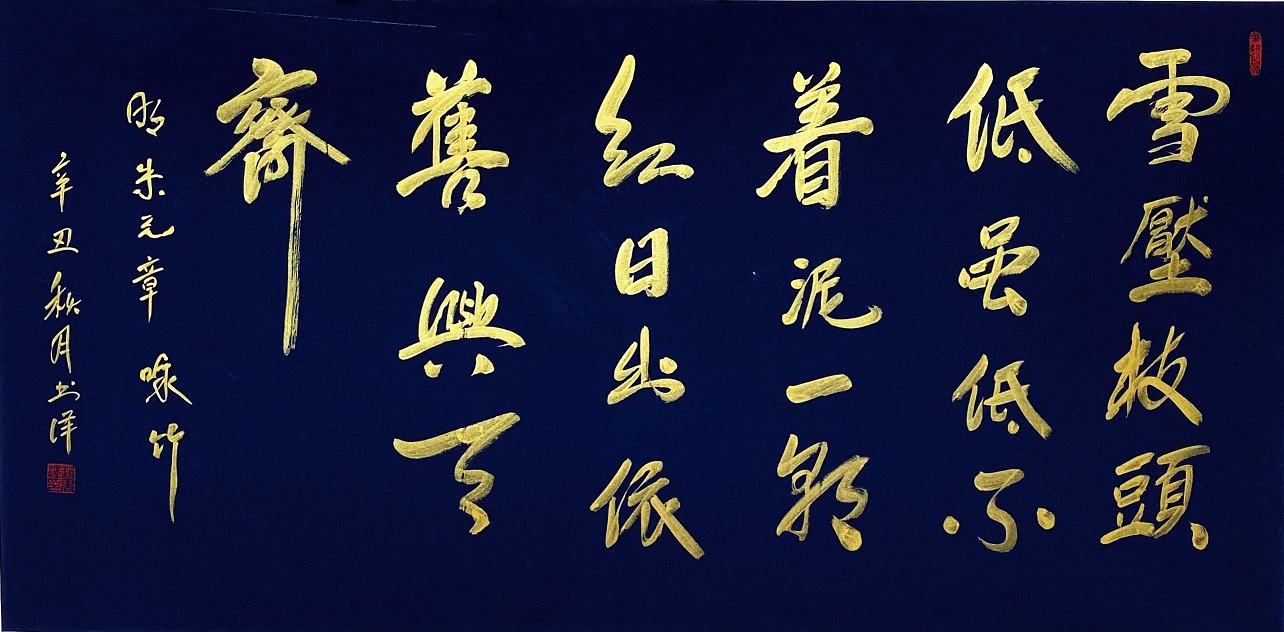 雪壓枝頭
低虽低不
着泥一朝
红日出依
舊與天
齊
明朱元章 咏竹
辛丑秋月书